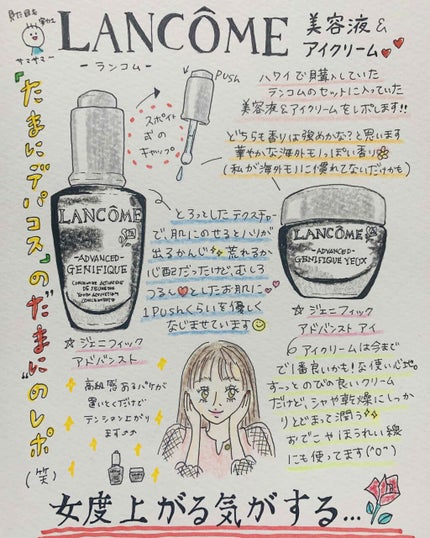 見た目も
変わる
サマサマー
LANCÔME
美容液&
アイクリーム
-ランコム-
PUSH
スポイト
式の
キャップ
ハワイで購入していた
ランコムのセットに入っていた
美容液&アイクリームをレポします!!
どちらも香りは強めかな?と思います
華やかな海外モノっぽい香り
(私が海外モノに慣れてないだけかも)
『たまにデパコス』の"たまに"のレポ
(笑)
LANCÔME
-ADVANCED-
GÉNIFIQUE
とろっとしたテクスチャー
で、肌にのせるとハリが
出るかんじ
荒れるか
心配だったけど、むしろ
つるん♥としたお肌に
1Pushくらいを優しく
なじませています
LANCÔME
-ADVANCED-
GÉNIFIQUE YEUX
☆ジェニフィック
アドバンスト
☆ジェニフィック
アドバンスト アイ
アイクリームは今まで
で1番良いかも!な使い心地。
すっとのびの良いクリーム
だけど、シャや乾燥にしっか
りとどまって潤う
おでこやほうれい線
にも使ってます(^o^)
高級感あるパケが
置いとくだけで
テンション上がり
ます
女度上がる気がする...